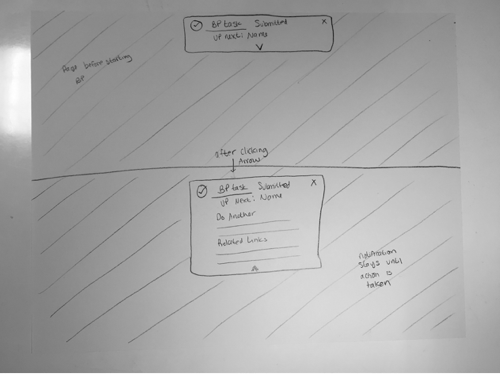 BP task Submitted X
UP Next: Name
Page before starting
BP
after clicking
Arrow
BP task Submitted X
UP Next: Name
Do Another
Related Links
notification
stays until
action is
taken